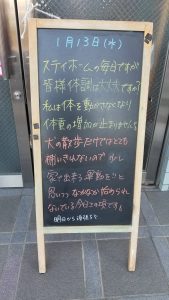 1月13日(水)
ステイホームの毎日ですが
皆様体調は大丈夫ですか?
私は体を動かさなくなり
体重の増加が止まりません
犬の散歩だけではとても
補いきれないので 少し
家で出来る運動をと
思いつつ なかなか始められ
ないでいる今日この頃です。
明日から頑張ろう